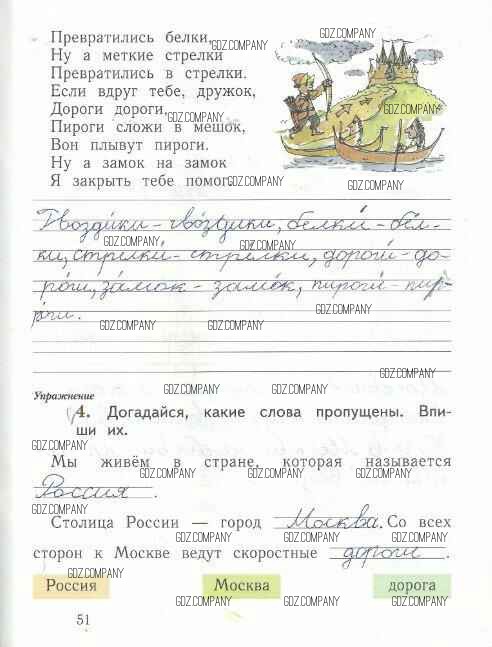 Превратились белки,
Ну а меткие стрелки
Превратились в стрелки.
Если вдруг тебе, дружок,
Дороги дороги,
Пироги сложи в мешок,
Вон плывут пироги.
Ну а замок на замок
Я закрыть тебе помог.
Гвозди́ки - гво́здики, белки́ - бе́л-
ки, стрелки́ - стре́лки, дороги́ - до-
ро́ги, за́мок - замо́к, пироги́ - пир-
о́ги.
Упражнение
4. Догадайся, какие слова пропущены. Впи-
ши их.
Мы живём в стране, которая называется
Россия.
Столица России — город Москва. Со всех
сторон к Москве ведут скоростные дороги.
Россия Москва дорога
51
GDZ.COMPANY